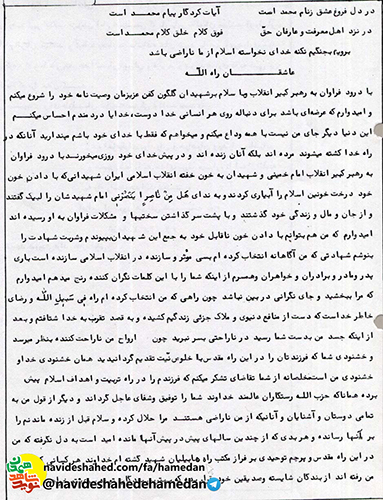 در دل فروغ عشق زنام محمد است آیات کردگار پیام محمد است
در نزد اهل معرفت و عارفان حق فوق کلام خلق کلام محمد است
برویم بجنگیم نکنه خدای نخواسته اسلام از ما ناراضی باشد
عاشقان راه الله
با درود فراوان به رهبر کبیر انقلاب وبا سلام برشهیدان گلگون کفن عزیزمان وصیت نامه خود را شروع میکنم
و امیدوارم که عرضه‌ای باشد برای دنباله روی هر انسانی خدا دوست،خدایا دردمندم احساس میکنم
این دنیا دیگر جای من نیست با همه وداع میکنم و میخواهم که فقط با خدای خود باشم میندارید آنانکه در
راه خدا کشته میشوند مرده اند بلکه آنان زنده اند و در پیش خدای خود روزی میخورند با درود فراوان
به رهبر کبیر انقلاب امام خمینی و شهیدان به خون خفته انقلاب اسلامی ایران شهیدانی که با دادن خون
خود درخت خونین اسلام را آبیاری کردند و به ندای هل من ناصر ینصرنی امام شهیدشان را لبیک گفتند
و از جان و مال و زندگی خود گذشتند و با پشت سر گذاشتن سختیها و مشکلات فراوان به او رسیده اند
امیدوارم که من هم بتوانم با دادن خون ناقابل خود به جمع این شهیدان بپیوندم وشربت شهادت را
بنوشم شهادتی که من آگاهانه انتخاب کرده ام بسی موثر و سازنده در انقلاب اسلامی سازنده است باری
پدر ومادر و برادران و خواهران وهمسرم از اینکه شما را با این کلمات نگران کننده رنج میدهم امیدوارم
که مرا ببخشید و جای نگرانی در بین نباشد چون راهی که من انتخاب کرده ام راه فی سبیل الله و رضای
خاطر خدا است که دست از منافع دنیوی و ملاک جزئی زندگیم کشیده و به قصد تقرب به خدا شتافتم و بعد
از اینکه جسد من بدست شما رسید در ناراحتی بسر نبرید چون ارواح من ناراحت کننده بنظر میرسد
و خشنودی شما که فرزندتان را در این راه مقدس با خلوص نیت تقدیم گردانیدید همان خشنودی خدا و
خشنودی من است مخلصانه از شما تقاضای تشکر میکنم که فرزندم را در راه تربیت و اهداف اسلام پیش
برده همانا که حزب الله رستگاران عالمند خداوند شما را توفیق وشفای عاجل گرداند و دیگر از قول من به
تمامی دوستان و آشنایان و آنانیکه از من ناراضی هستند مرا حلال کرده و سلام قبل از زنده ماندنم را
بر آنها رسانده و هر بدی که از چندین سالهای پیش در پیش آنها مانده امید است به دل نگرفته که من
در این راه مقدس و پرچم توحیدی بر فراز مکتب راه هابیلیان شهید گشته ام خداوند هر
من رفته اند از بندگان شایسته وصدیقین خود
navideshahed.com/fa/hamedan
@navideshahedehamedan